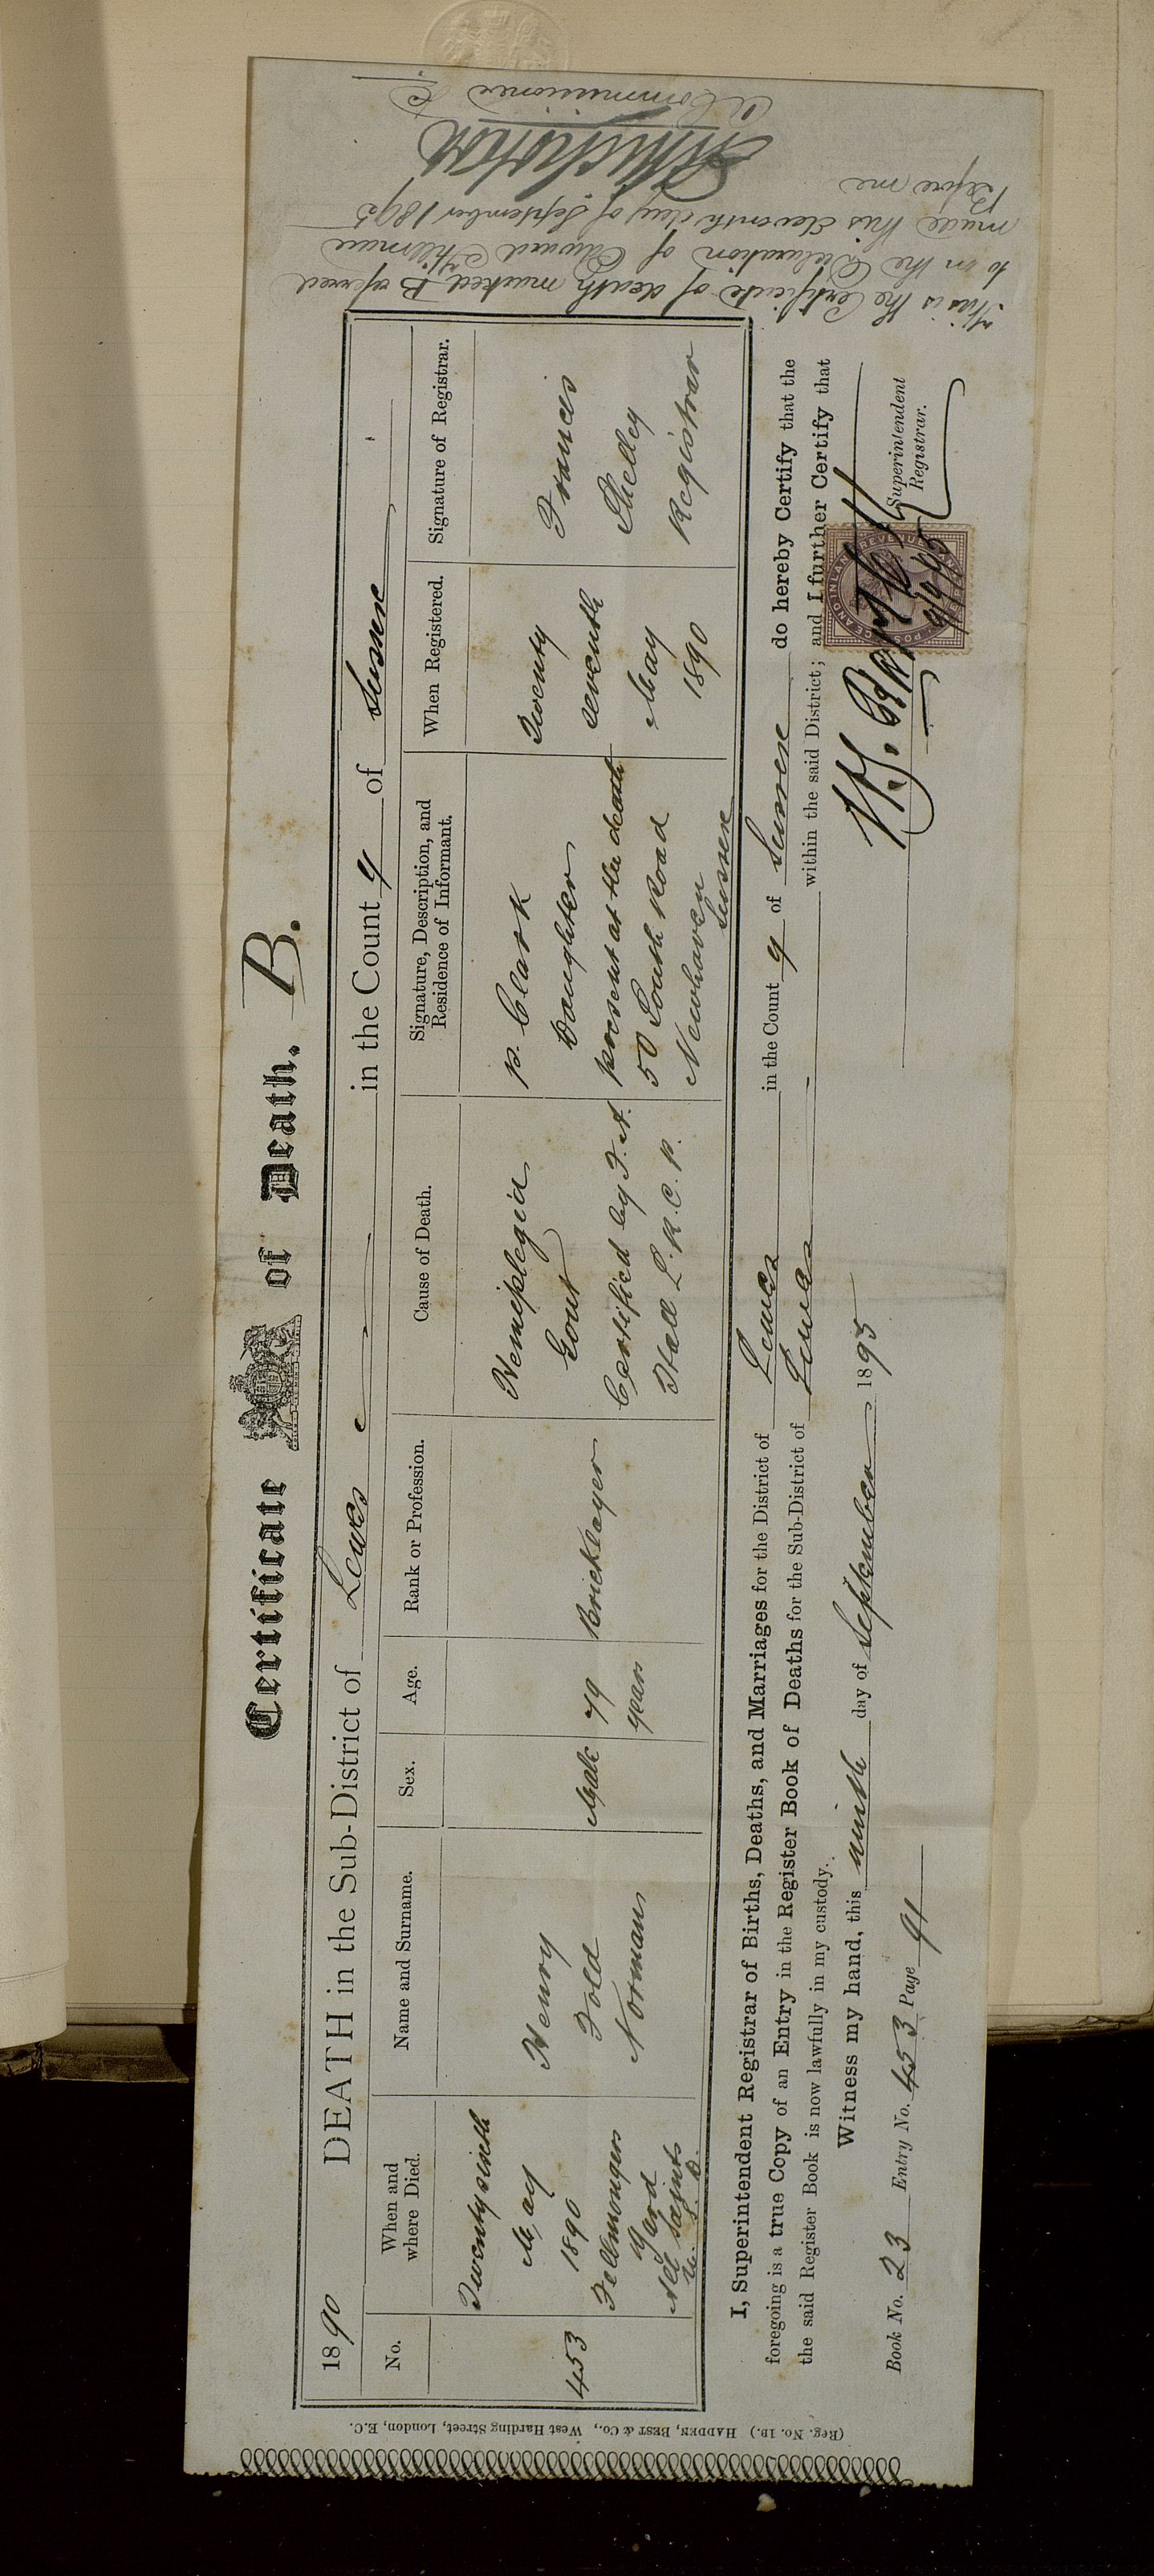 Certificate of Death. B.
1890 DEATH in the Sub-District of Lewes in the County of Sussex
No.
When and where Died.
Name and Surname.
Sex.
Age.
Rank or Profession.
Cause of Death.
Signature, Description, and Residence of Informant.
When Registered.
Signature of Registrar.
453
Twenty sixth
May
1890
Fellmongers
Yard
All Saints
U. S. D.
Henry
Fold
Norman
Male
79
years
Bricklayer
Hemiplegia
Gout
Certified by F. A.
Hall L. R. C. P.
P. Clark
Daughter
present at the death
50 South Road
Newhaven
Sussex
Twenty
seventh
May
1890
Francis
Shelley
Registrar
I, Superintendent Registrar of Births, Deaths, and Marriages for the District of Lewes in the County of Sussex do hereby Certify that the
foregoing is a true Copy of an Entry in the Register Book of Deaths for the Sub-District of Lewes within the said District; and I further Certify that
the said Register Book is now lawfully in my custody.
Witness my hand, this ninth day of September 1895
Superintendent
Registrar.
9/9/95
Book No. 23 Entry No. 453 Page 91
(Reg. No. 1B.) HADDEN, BEST & Co., West Harding Street, London, E.C.
This is the Certificate of death marked B referred
to in the Declaration of Edward Hillman
made this eleventh day of September 1895
Before me
A Commissioner &c